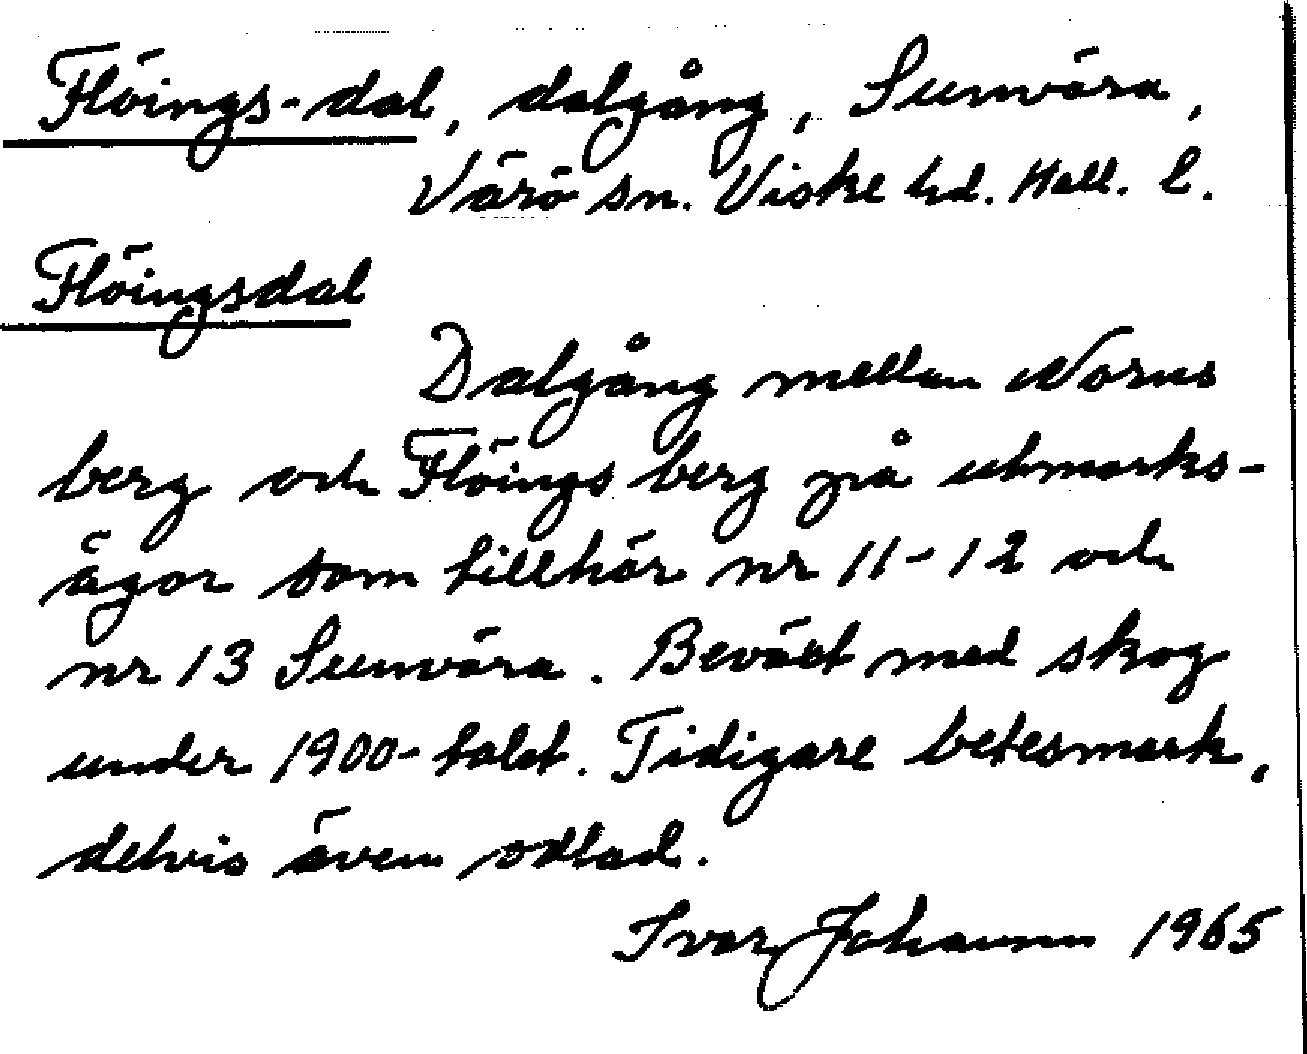 Flöings-dal, dalgång, Sunvära,
Värö sn. Viske hd. Hall. l.
Flöingsdal
Dalgång mellan Norns
berg och Flöings berg på utmarks-
ägor som tillhör nr 11-12 och
nr 13 Sunvära. Beväxt med skog
under 1900-talet. Tidigare betesmark,
delvis även odlad.
Ivar Johansson 1965